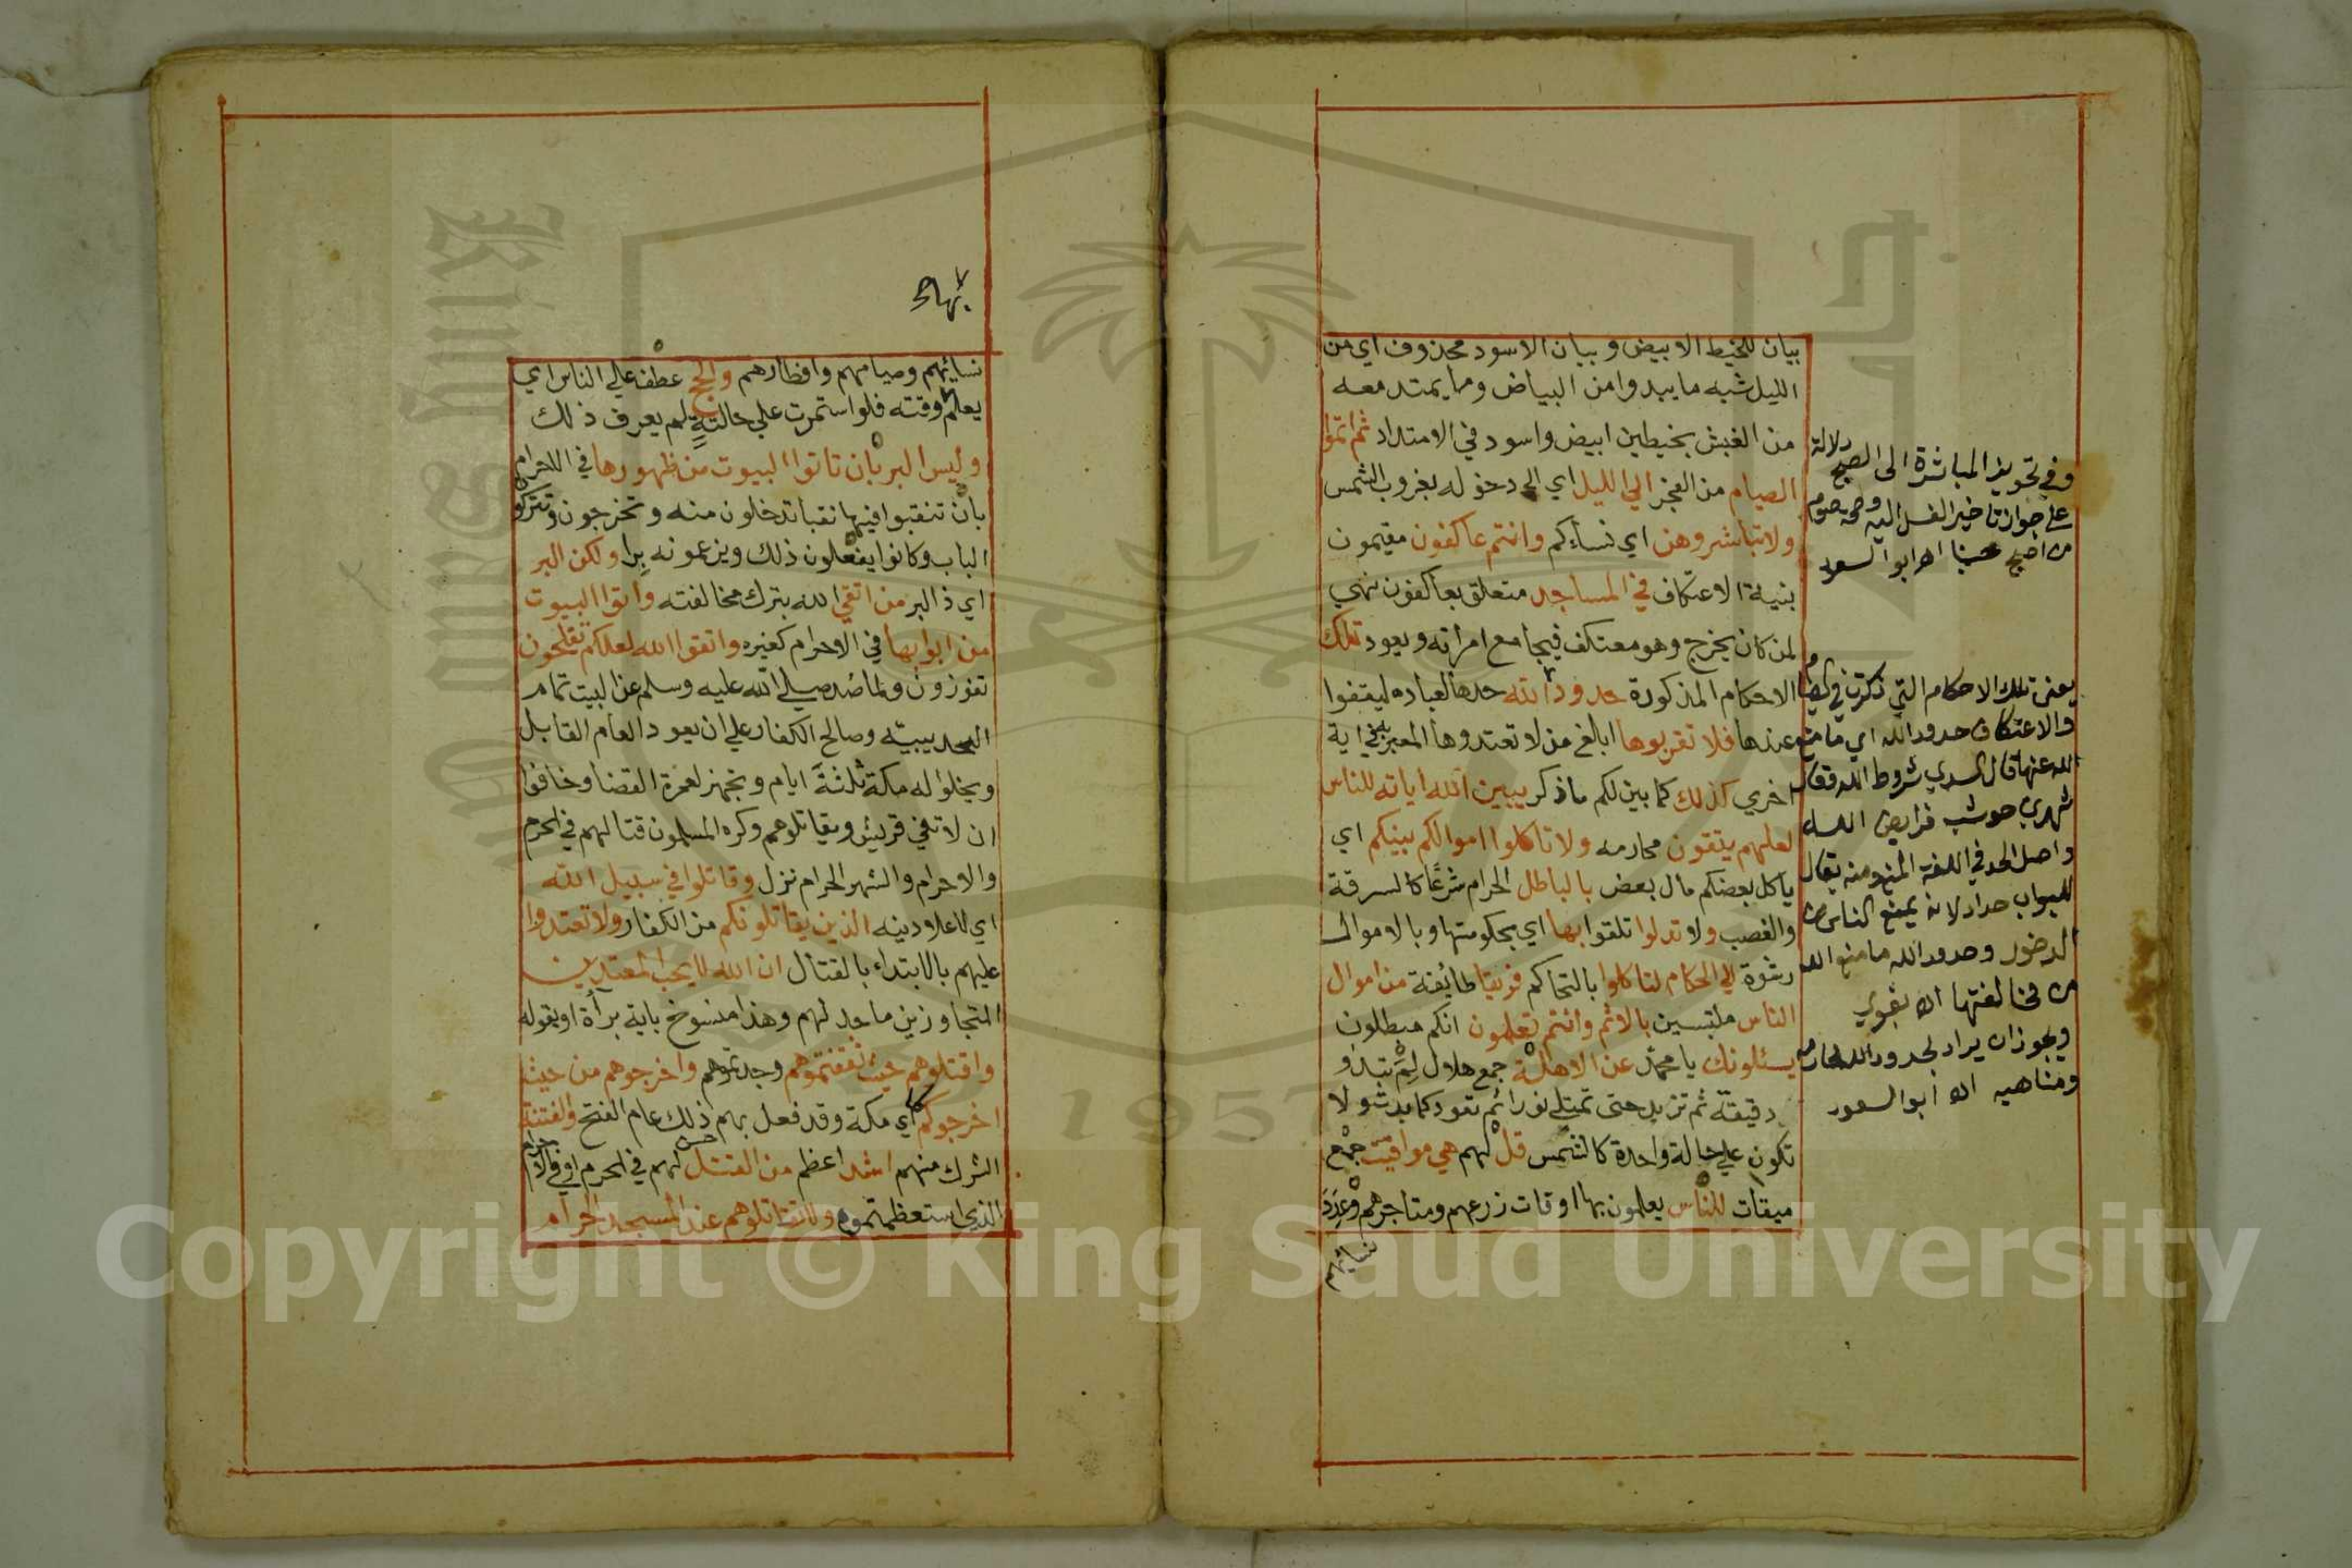 بيان للخيط الابيض وبيان الاسود محذوف اي من
الليل شبه ما يبدوا من البياض وما يمتد معه
من الغبش بخيطين ابيض واسود في الامتداد ثم اتموا
الصيام من الفجر الي الليل اي الي دخوله بغروب الشمس
ولا تباشروهن اي نساءكم وانتم عاكفون مقيمون
بنية الاعتكاف في المساجد متعلق بعاكفون نهي
لمن كان يخرج وهو معتكف فيجامع امراته ويعود تلك
الاحكام المذكورة حدود الله حدها لعباده ليقفوا
عندها فلا تقربوها ابلغ من لا تعتدوها المعبر به في اية
اخري كذلك كما بين لكم ما ذكر يبين الله اياته للناس
لعلهم يتقون محارمه ولا تاكلوا اموالكم بينكم اي
ياكل بعضكم مال بعض بالباطل الحرام شرعًا كالسرقة
والغصب ولا تدلوا تلقوا بها اي بحكومتها وبالاموال
رشوة الي الحكام لتاكلوا بالتحاكم فريقا طائفة من اموال
الناس ملتبسين بالاثم وانتم تعلمون انكم مبطلون
يسئلونك يا محمّد عن الاهلّة جمع هلال لِمَ تبدو
دقيقة ثم تزيد حتى تمتلي نورا ثم تعود كما بدت ولا
تكون علي حالة واحدة كالشمس قل لهم هي مواقيت جمع
ميقات للناس يعلمون بها اوقات زرعهم ومتاجرهم وعِدَدَ
نسائهم
وفي تجويز المباشرة الى الصبح دلالة
على جواز تاخير الغسل اليه وصحة صوم
من اصبح جنبا اه ابو السعود
يعنى تلك الاحكام التي ذكرت في الصيام
والاعتكاف حدود الله اي ما منع
الله عنها قال السدي شروط الله وقال
شهر بن حوشب فرايض الله
واصل الحد في اللغة المنع ومنه يقال
للبواب حداد لانه يمنع الناس من
الدخول وحدود الله ما منع الله
من مخالفتها اه بغوي
ويجوز ان يراد بحدود الله محارمه
ومناهيه اه ابو السعود
نسائهم وصيامهم وافطارهم والحج عطف علي الناس اي
يعلم وقته فلو استمرت علي حالةٍ لم يعرف ذلك
وليس البر بان تاتوا البيوت من ظهورها في الاحرام
بان تنقبوا فيها نقبا تدخلون منه وتخرجون وتتركوا
الباب وكانوا يفعلون ذلك ويزعمونه برا ولكن البر
اي ذا البر من اتقي الله بترك مخالفته واتوا البيوت
من ابوابها في الاحرام كغيره واتقوا الله لعلكم تفلحون
تفوزون ولما صُد صلى الله عليه وسلم عن البيت عام
الحديبية وصالح الكفار علي ان يعود العام القابل
ويخلوا له مكة ثلثةَ ايام وتجهز لعمرة القضا وخافوا
ان لا تفي قريش ويقاتلوهم وكره المسلمون قتالهم في الحرم
والاحرام والشهر الحرام نزل وقاتلوا في سبيل الله
اي لاعلاء دينه الذين يقاتلونكم من الكفار ولا تعتدوا
عليهم بالابتداء بالقتال ان الله لا يحب المعتدين
المتجاوزين ما حد لهم وهذا منسوخ باية براءة او بقوله
واقتلوهم حيث ثقفتموهم وجدتموهم واخرجوهم من حيث
اخرجوكم اي مكة وقد فعل بهم ذلك عام الفتح والفتنة
الشرك منهم اشد اعظم من القتل لهم في الحرم او في الاحرام
الذي استعظمتموه ولا تقاتلوهم عند المسجد الحرام
King Saud
1957
Copyright © King Saud University